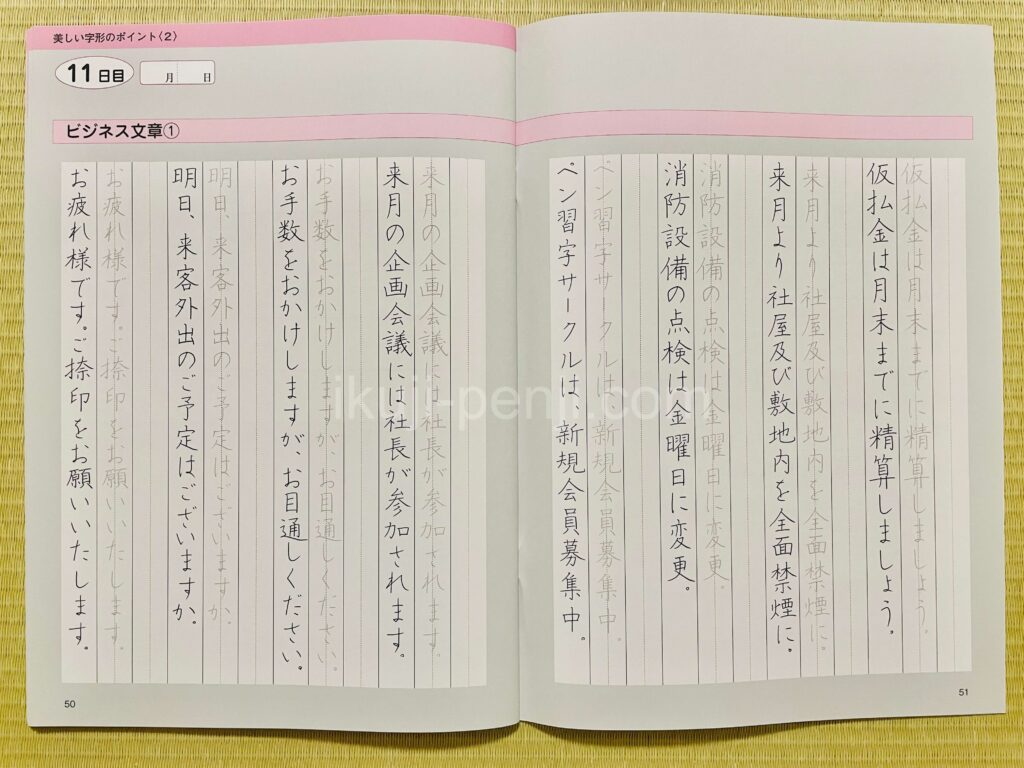 美しい字形のポイント〈2〉
11日目
月 日
ビジネス文章①
来月の企画会議には社長が参加されます。
来月の企画会議には社長が参加されます。
お手数をおかけしますが、お目通しください。
お手数をおかけしますが、お目通しください。
明日、来客外出のご予定はございますか。
明日、来客外出のご予定はございますか。
お疲れ様です。ご捺印をお願いいたします。
お疲れ様です。ご捺印をお願いいたします。
50
仮払金は月末までに精算しましょう。
仮払金は月末までに精算しましょう。
来月より社屋及び敷地内を全面禁煙に。
来月より社屋及び敷地内を全面禁煙に。
消防設備の点検は金曜日に変更。
消防設備の点検は金曜日に変更。
ペン習字サークルは、新規会員募集中。
ペン習字サークルは、新規会員募集中。
51
ikuji-penji.com